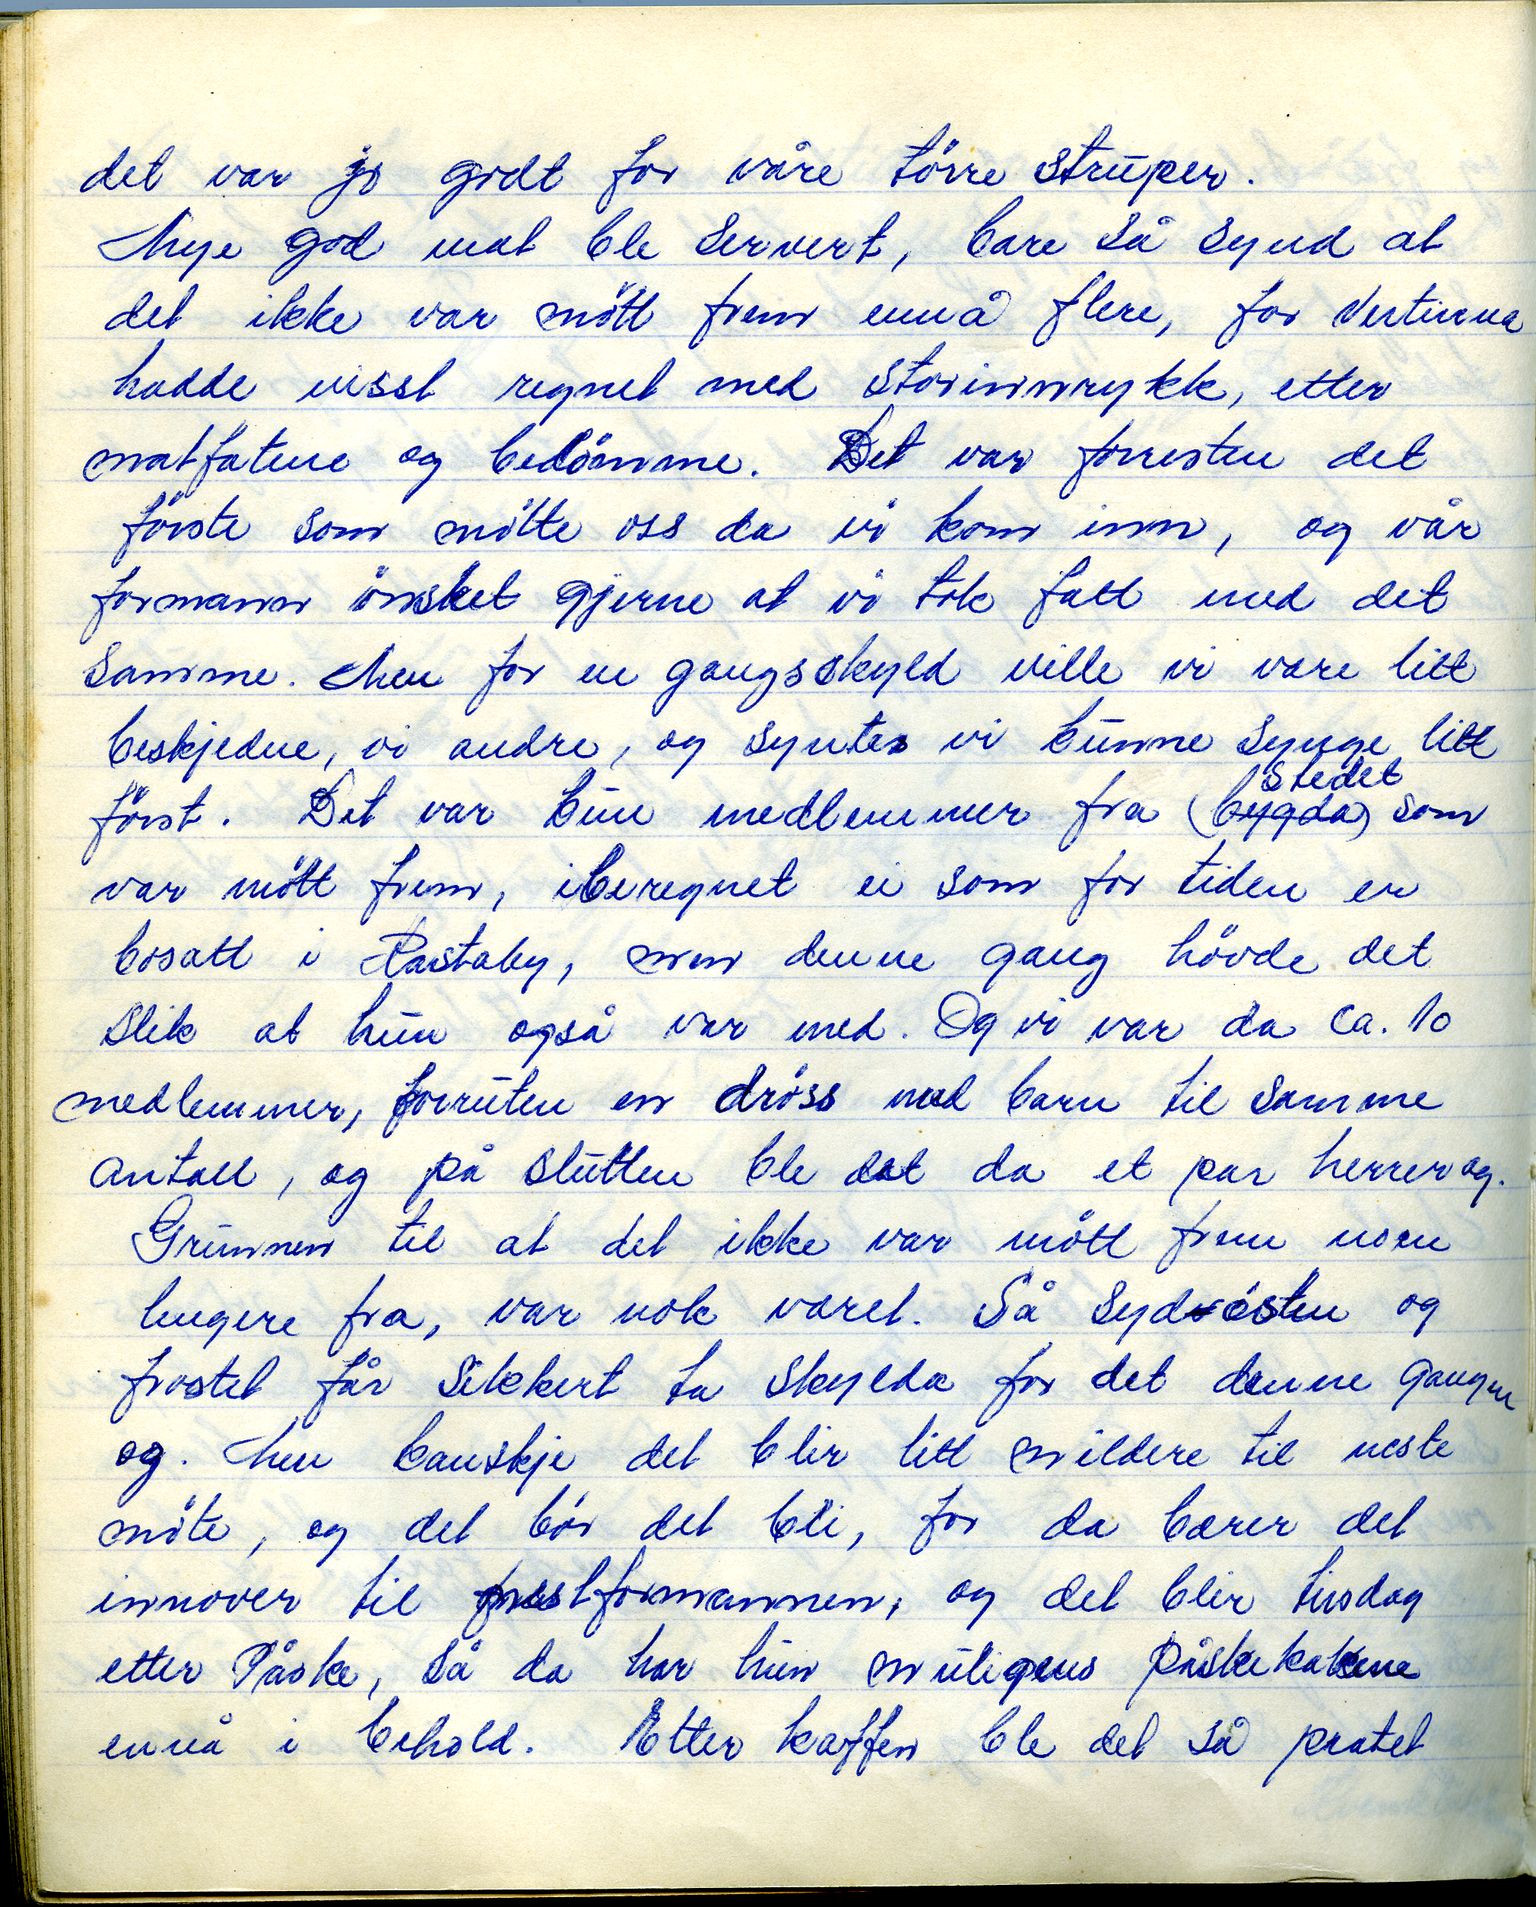 det var jo godt for våre törre strúper.
Mye god mat ble servert, bare så synd at
det ikke var mött frem ennå flere, for Vertinna
hadde visst regnet med storinnrykk, etter
matfatene og bedömme. Det var forresten det
förste som mötte oss da vi kom inn, og vår
formann önsket gjerne at vi tok fatt med det
samme. Men for en gangsskyld ville vi være litt
beskjedne, vi andre, og syntes vi kunne synge litt
först. Det var kun medlemmer fra (bygda) stedet som
var mött frem, iberegnet ei som for tiden er
bosatt i Rastaby, men denne gang hövde det
slik at hun også var med. Og vi var da ca. 10
medlemmer, forruten en dröss med barn til samme
antall, og på slutten ble det da et par herrer og.
Grunnen til at det ikke var mött frem noen
lengere fra, var nok været. Så sydösten og
frostet får sikkert ta skylda for det denne gangen
og. Men kanskje det blir litt mildere til neste
möte, og det bör det bli, for da bærer det
innover til nestformannen, og det blir tirsdag
etter Påske, så da har hun muligens påskekakene
ennå i behold. Etter kaffen ble det så pratet